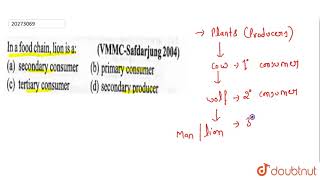 20273069
In a food chain, lion is a: (VMMC-Safdarjung 2004)
(a) secondary consumer (b) primary consumer
(c) tertiary consumer (d) secondary producer
→ Plants (Producers)
↓
cow → 1° consumer
↓
wolf → 2° consumer
↓
Man | lion → 3°
doubtnut